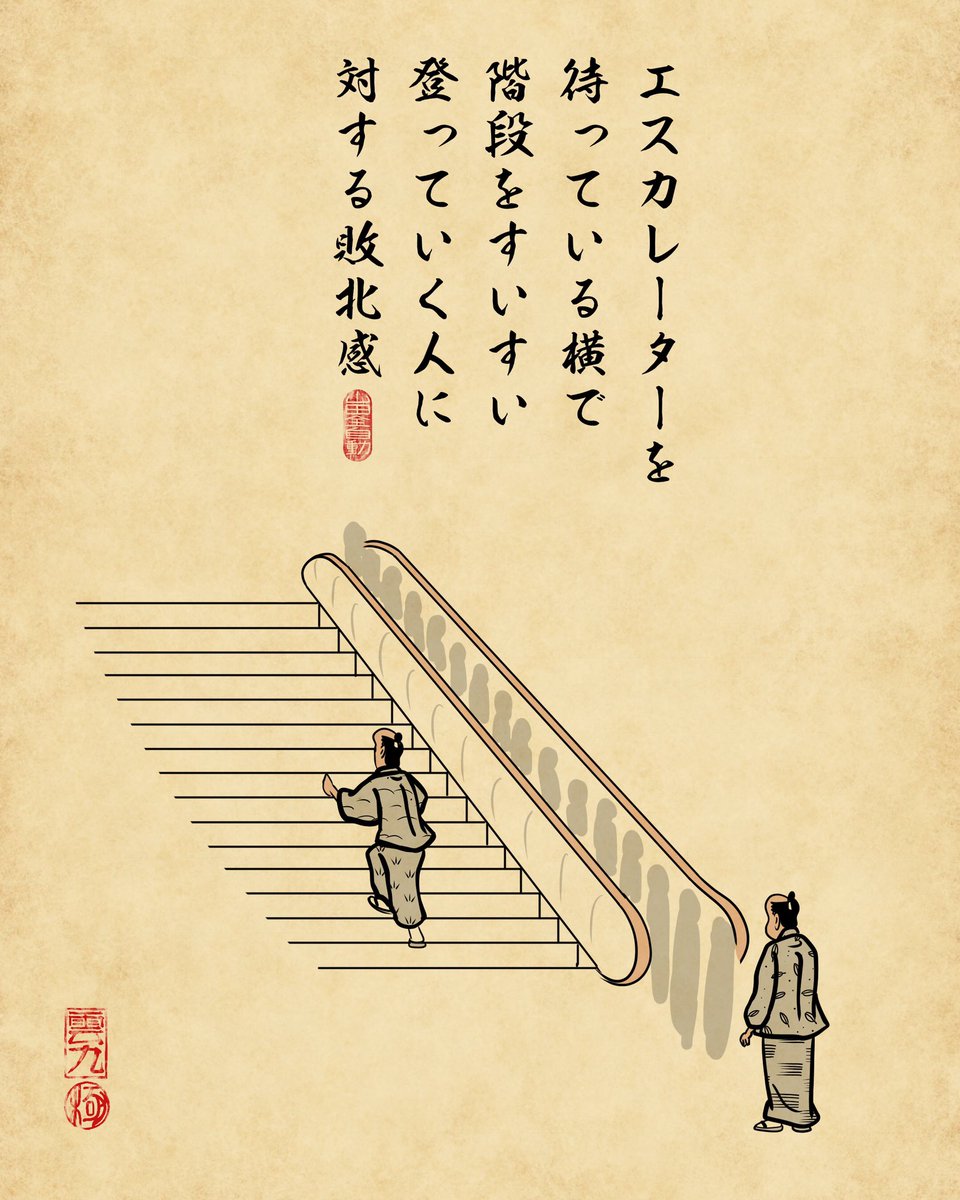 エスカレーターを
待っている横で
階段をすいすい
登っていく人に
対する敗北感